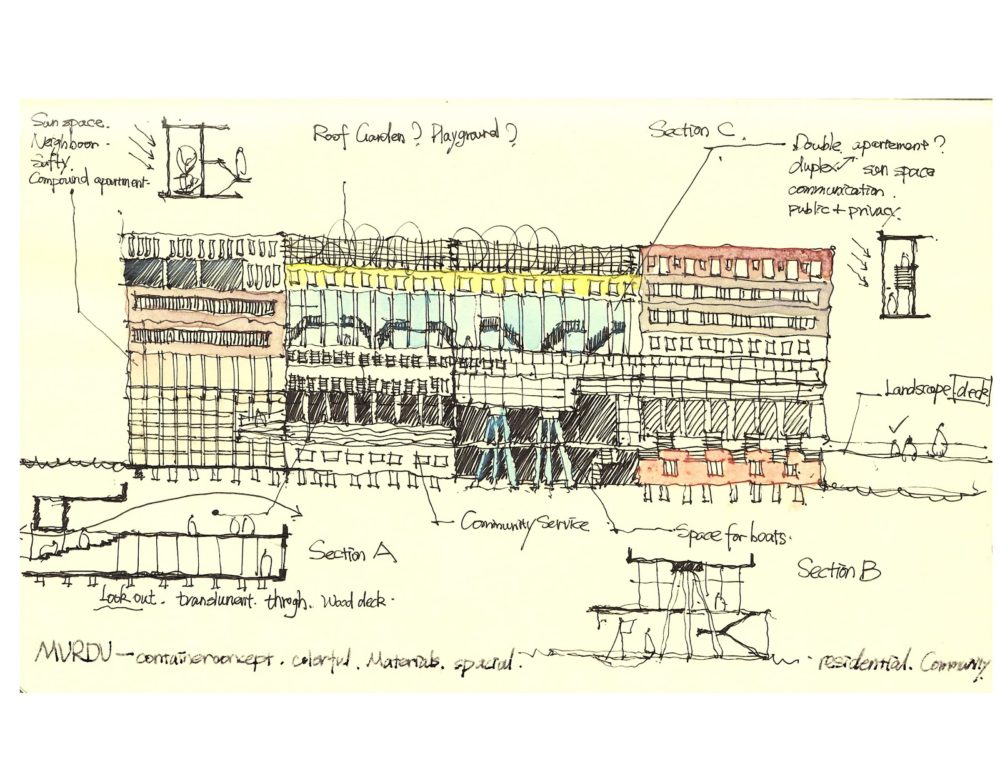 Sun space.
Neighboor.
Safty.
Compound apartment.
Roof Garden? Playground?
Section C.
Double apartement?
duplex sun space
communication.
public + privacy.
Landscape deck
Community Service
Space for boats.
Section A
Section B
Look out. translunent. throgh. Wood deck.
MVRDV — container concept. colorful. Materials. spacial.
residential. Community